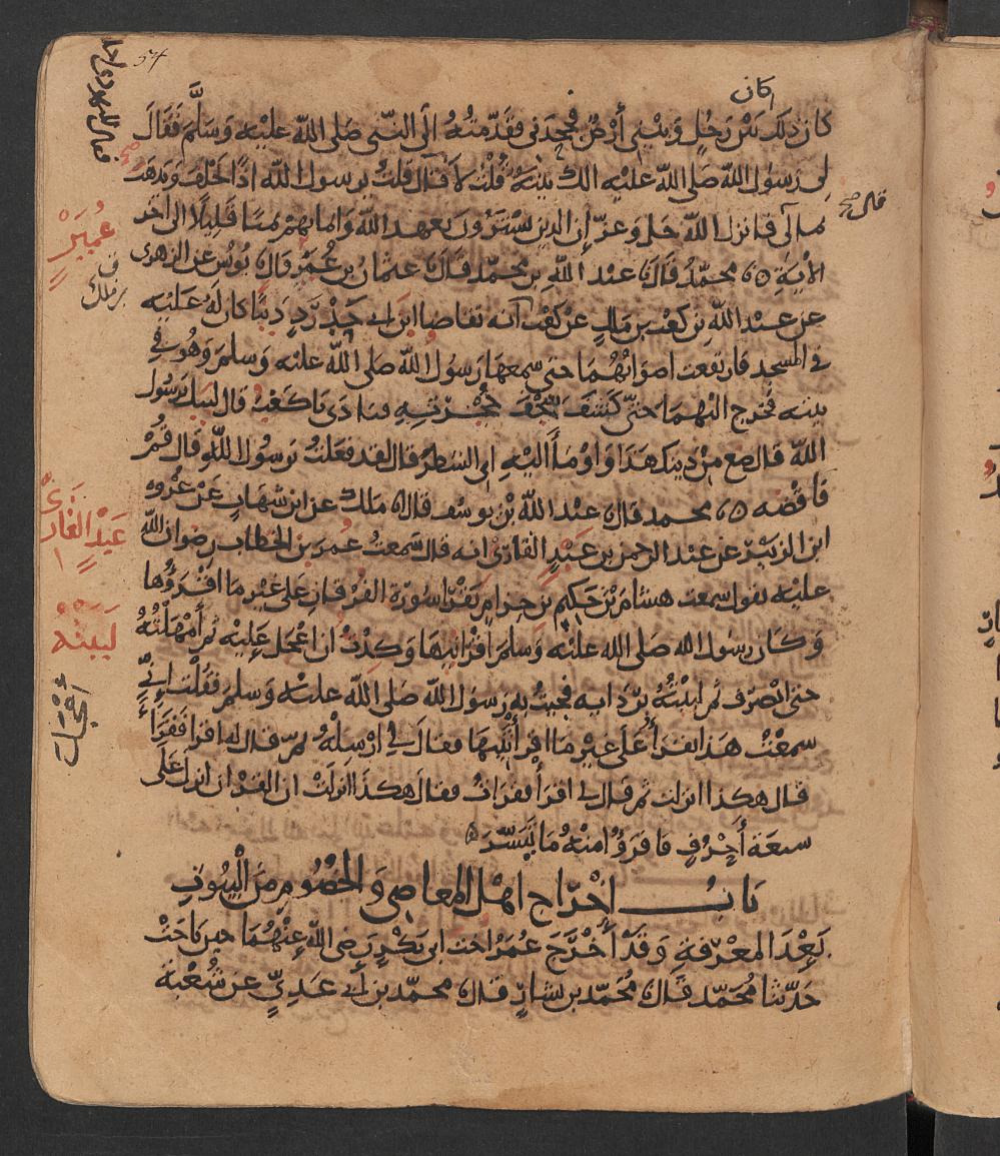 54
كان
كان ذلك بين رجل وبيني أرض فجحدني فقدمته الى النبي صلى الله عليه وسلم فقال
لي رسول الله صلى الله عليه الك بينة قلت لا قال قلت يرسول الله اذا يحلف ويذهب
بمالي فانزل الله جل وعز إن الذين يشترون بعهد الله وايمانهم ثمنا قليلا الى اخر
قال صح
الاية ۞ محمد قال نا عبد الله بن محمد قال نا عثمان بن عُمَر قال نا يونس عن الزهري
عُمَيْر
عن عبد الله بن كعب بن مالك عن كعب أنه تقاضا ابن ابي حدرد دينا كان له عليه
بن ملك
في المسجد فارتفعت اصواتهما حتى سمعها رسول الله صلى الله عليه وسلم وهو في
بيته فخرج اليهما حتى كشف سجف حجرته فنادى يا كعب قال لبيك يرسول
الله قال ضع من دينك هذا واومأ اليه اي الشطر قال لقد فعلت يرسول الله قال قم
فاقضه ۞ محمد قال نا عبد الله بن يوسف قال انا ملك عن ابن شهاب عن عروه
ابن الزبير عن عبد الرحمن بن عَبْدٍ القاري انه قال سمعت عمر بن الخطاب رضوان الله
عَبْدٍ القارِيِّ
عليه يقول سمعت هشام بن حكيم بن حزام يقرأ سورة الفرقان على غير ما اقرؤها
وكان رسول الله صلى الله عليه وسلم أقرأنيها وكدت ان اعجل عليه ثم أمهلته
لَبَبْتُهُ
حتى انصرف ثم لببته بردائه فجيت به رسول الله صلى الله عليه وسلم فقلت إني
سمعت هذا يقرأ على غير ما اقرأتنيها فقال لي ارسله ثم قال له اقرا فقرأ
قال هكذا انزلت ثم قال لي اقرأ فقرات فقال هكذا انزلت ان القران انزل على
سبعة أحرف فاقرؤا منه ما تيسر ۞
باب إخراج اهل المعاصي والخصوم من البيوت
بعد المعرفة وقد أخرج عمر اخت ابي بكر رضي الله عنهما حين ناحت
حدثنا محمد قال نا محمد بن بشار قال نا محمد بن أبي عدي عن شعبة